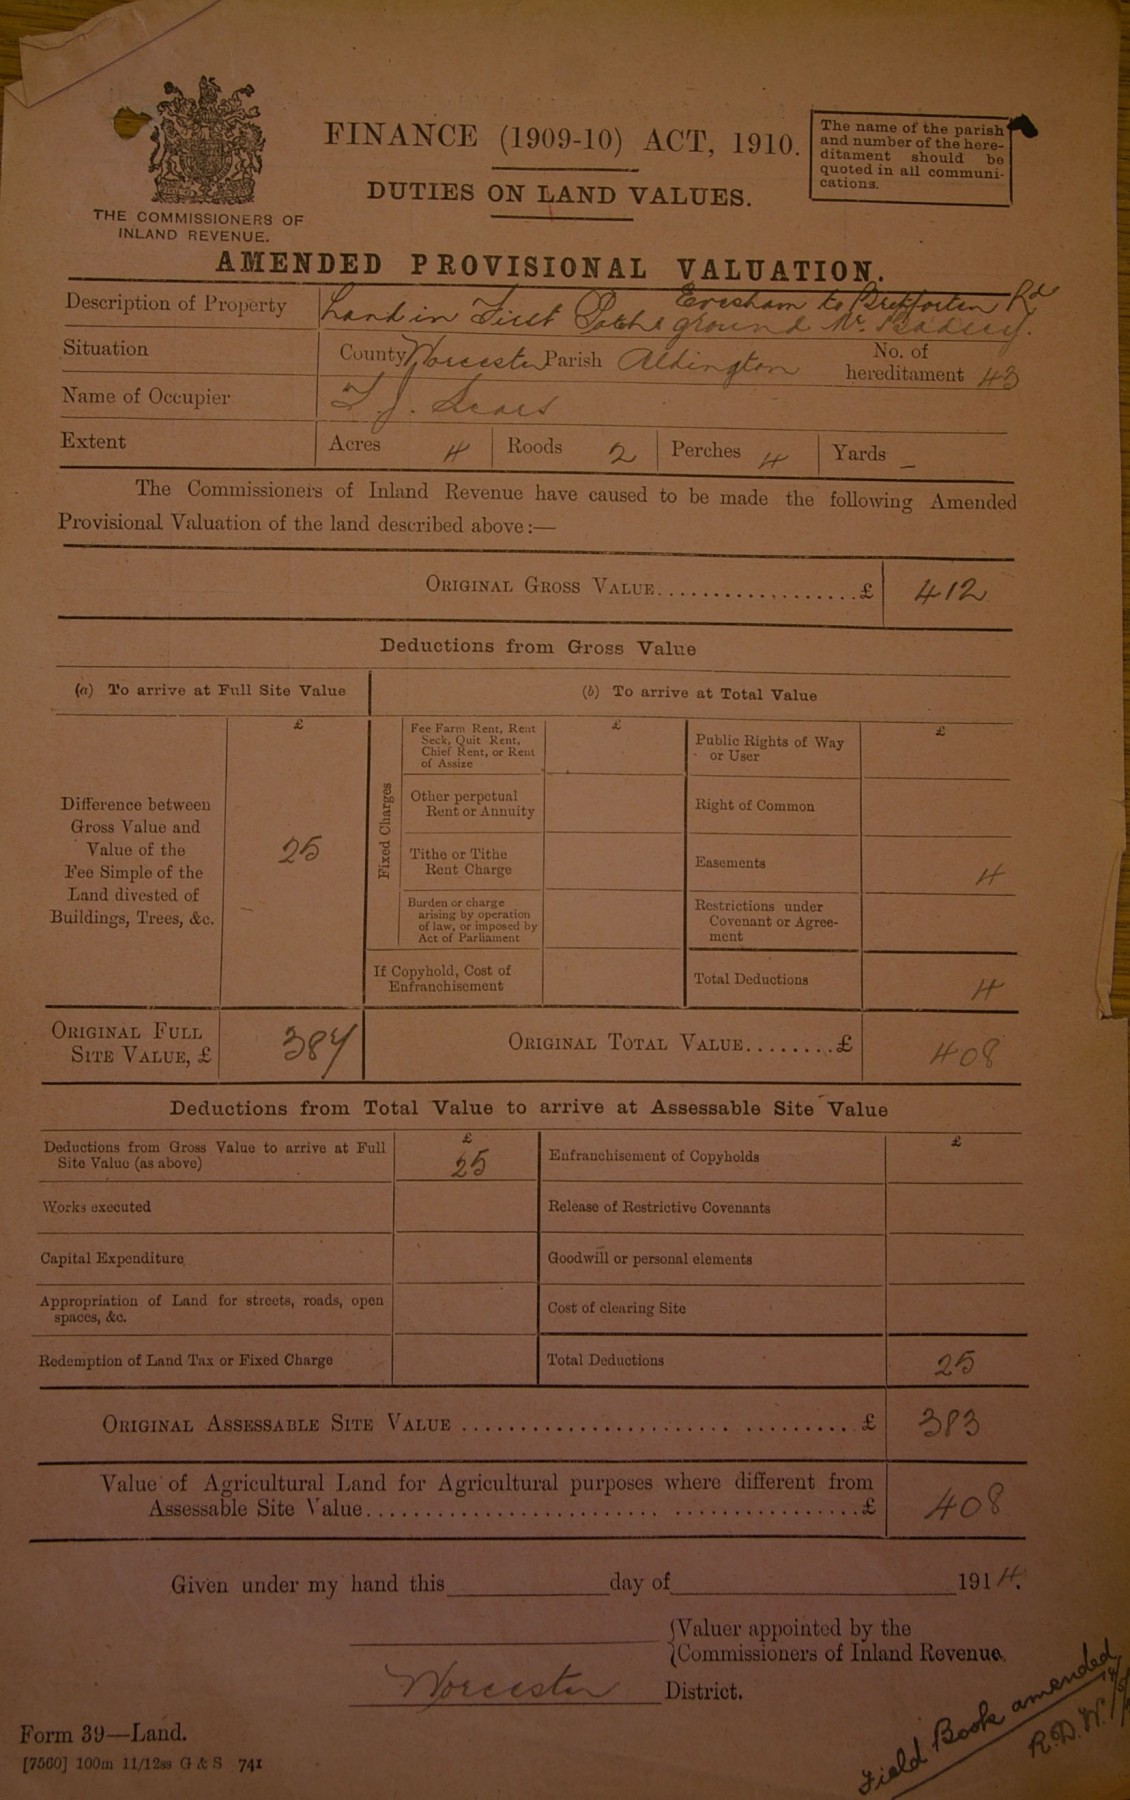 FINANCE (1909-10) ACT, 1910.
DUTIES ON LAND VALUES.
The name of the parish
and number of the here-
ditament should be
quoted in all communi-
cations.
THE COMMISSIONERS OF
INLAND REVENUE.
AMENDED PROVISIONAL VALUATION.
Evesham to Bretforten Rd
Description of Property Land in First ground Nr.
Situation County Worcester Parish Aldington No. of
hereditament 43
Name of Occupier T. J. Sears
Extent Acres 4 Roods 2 Perches 4 Yards –
The Commissioners of Inland Revenue have caused to be made the following Amended
Provisional Valuation of the land described above:—
ORIGINAL GROSS VALUE..................£ 412
Deductions from Gross Value
(a) To arrive at Full Site Value
(b) To arrive at Total Value
£
Difference between
Gross Value and
Value of the
Fee Simple of the
Land divested of
Buildings, Trees, &c.
25
Fixed Charges
£
Fee Farm Rent, Rent
Seck, Quit Rent,
Chief Rent, or Rent
of Assize
Other perpetual
Rent or Annuity
Tithe or Tithe
Rent Charge
Burden or charge
arising by operation
of law, or imposed by
Act of Parliament
If Copyhold, Cost of
Enfranchisement
£
Public Rights of Way
or User
Right of Common
Easements 4
Restrictions under
Covenant or Agree-
ment
Total Deductions 4
ORIGINAL FULL
SITE VALUE, £ 387
ORIGINAL TOTAL VALUE........£ 408
Deductions from Total Value to arrive at Assessable Site Value
£
£
Deductions from Gross Value to arrive at Full
Site Value (as above) 25
Enfranchisement of Copyholds
Works executed
Release of Restrictive Covenants
Capital Expenditure
Goodwill or personal elements
Appropriation of Land for streets, roads, open
spaces, &c.
Cost of clearing Site
Redemption of Land Tax or Fixed Charge
Total Deductions 25
ORIGINAL ASSESSABLE SITE VALUE .................................. £ 383
Value of Agricultural Land for Agricultural purposes where different from
Assessable Site Value..........................................£ 408
Given under my hand this day of 1914.
Valuer appointed by the
Commissioners of Inland Revenue.
Worcester District.
Form 39—Land.
[7560] 100m 11/12ss G & S 741
Field Book amended
R.D.W.